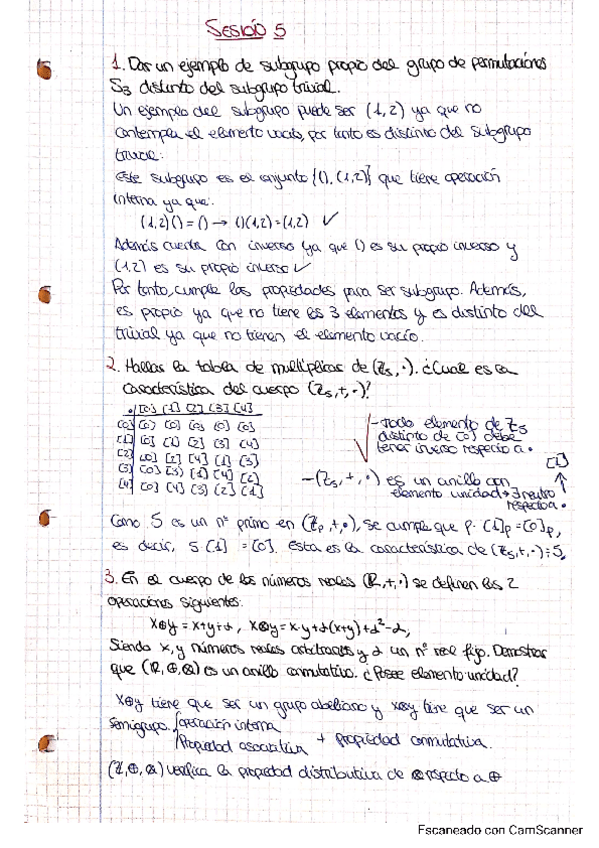 SESIÓN 5
1. Dar un ejemplo de subgrupo propio del grupo de permutaciones
S3 distinto del subgrupo trivial.
Un ejemplo del subgrupo puede ser (1,2) ya que no
contempla el elemento vacío, por tanto es distinto del subgrupo
trivial.
Este subgrupo es el conjunto {(), (1,2)} que tiene operación
interna ya que:
(1,2)() = () → ()(1,2) = (1,2) ✓
Además cuenta con inverso ya que () es su propio inverso y
(1,2) es su propio inverso ✓
Por tanto, cumple las propiedades para ser subgrupo. Además,
es propio ya que no tiene los 3 elementos y es distinto del
trivial ya que no tienen el elemento vacío.
2. Hallar la tabla de multiplicar de (Z5, ·). ¿Cual es la
característica del cuerpo (Z5, +, ·)?
· [0] [1] [2] [3] [4]
[0] [0] [0] [0] [0] [0]
[1] [0] [1] [2] [3] [4]
[2] [0] [2] [4] [1] [3]
[3] [0] [3] [1] [4] [2]
[4] [0] [4] [3] [2] [1]
- Todo elemento de Z5
distinto de [0] debe
tener inverso respecto a ·
[1]
- (Z5, +, ·) es un anillo con
elemento unidad → ∃ neutro
respecto a ·
Como 5 es un nº primo en (Zp, +, ·), se cumple que p · [1]p = [0]p,
es decir, 5 [1] = [0]. Esta es la característica de (Z5, +, ·): 5.
3. En el cuerpo de los números reales (R, +, ·) se definen las 2
operaciones siguientes:
x⊕y = x+y+α, x⊗y = x·y+α(x+y)+α²-α,
Siendo x, y números reales arbitrarios y α un nº real fijo. Demostrar
que (R, ⊕, ⊗) es un anillo conmutativo. ¿Posee elemento unidad?
x⊕y tiene que ser un grupo abeliano y x⊗y tiene que ser un
semigrupo. operación interna
Propiedad asociativa + propiedad conmutativa.
(Z, ⊕, ⊗) verifica la propiedad distributiva de ⊗ respecto a ⊕
Escaneado con CamScanner